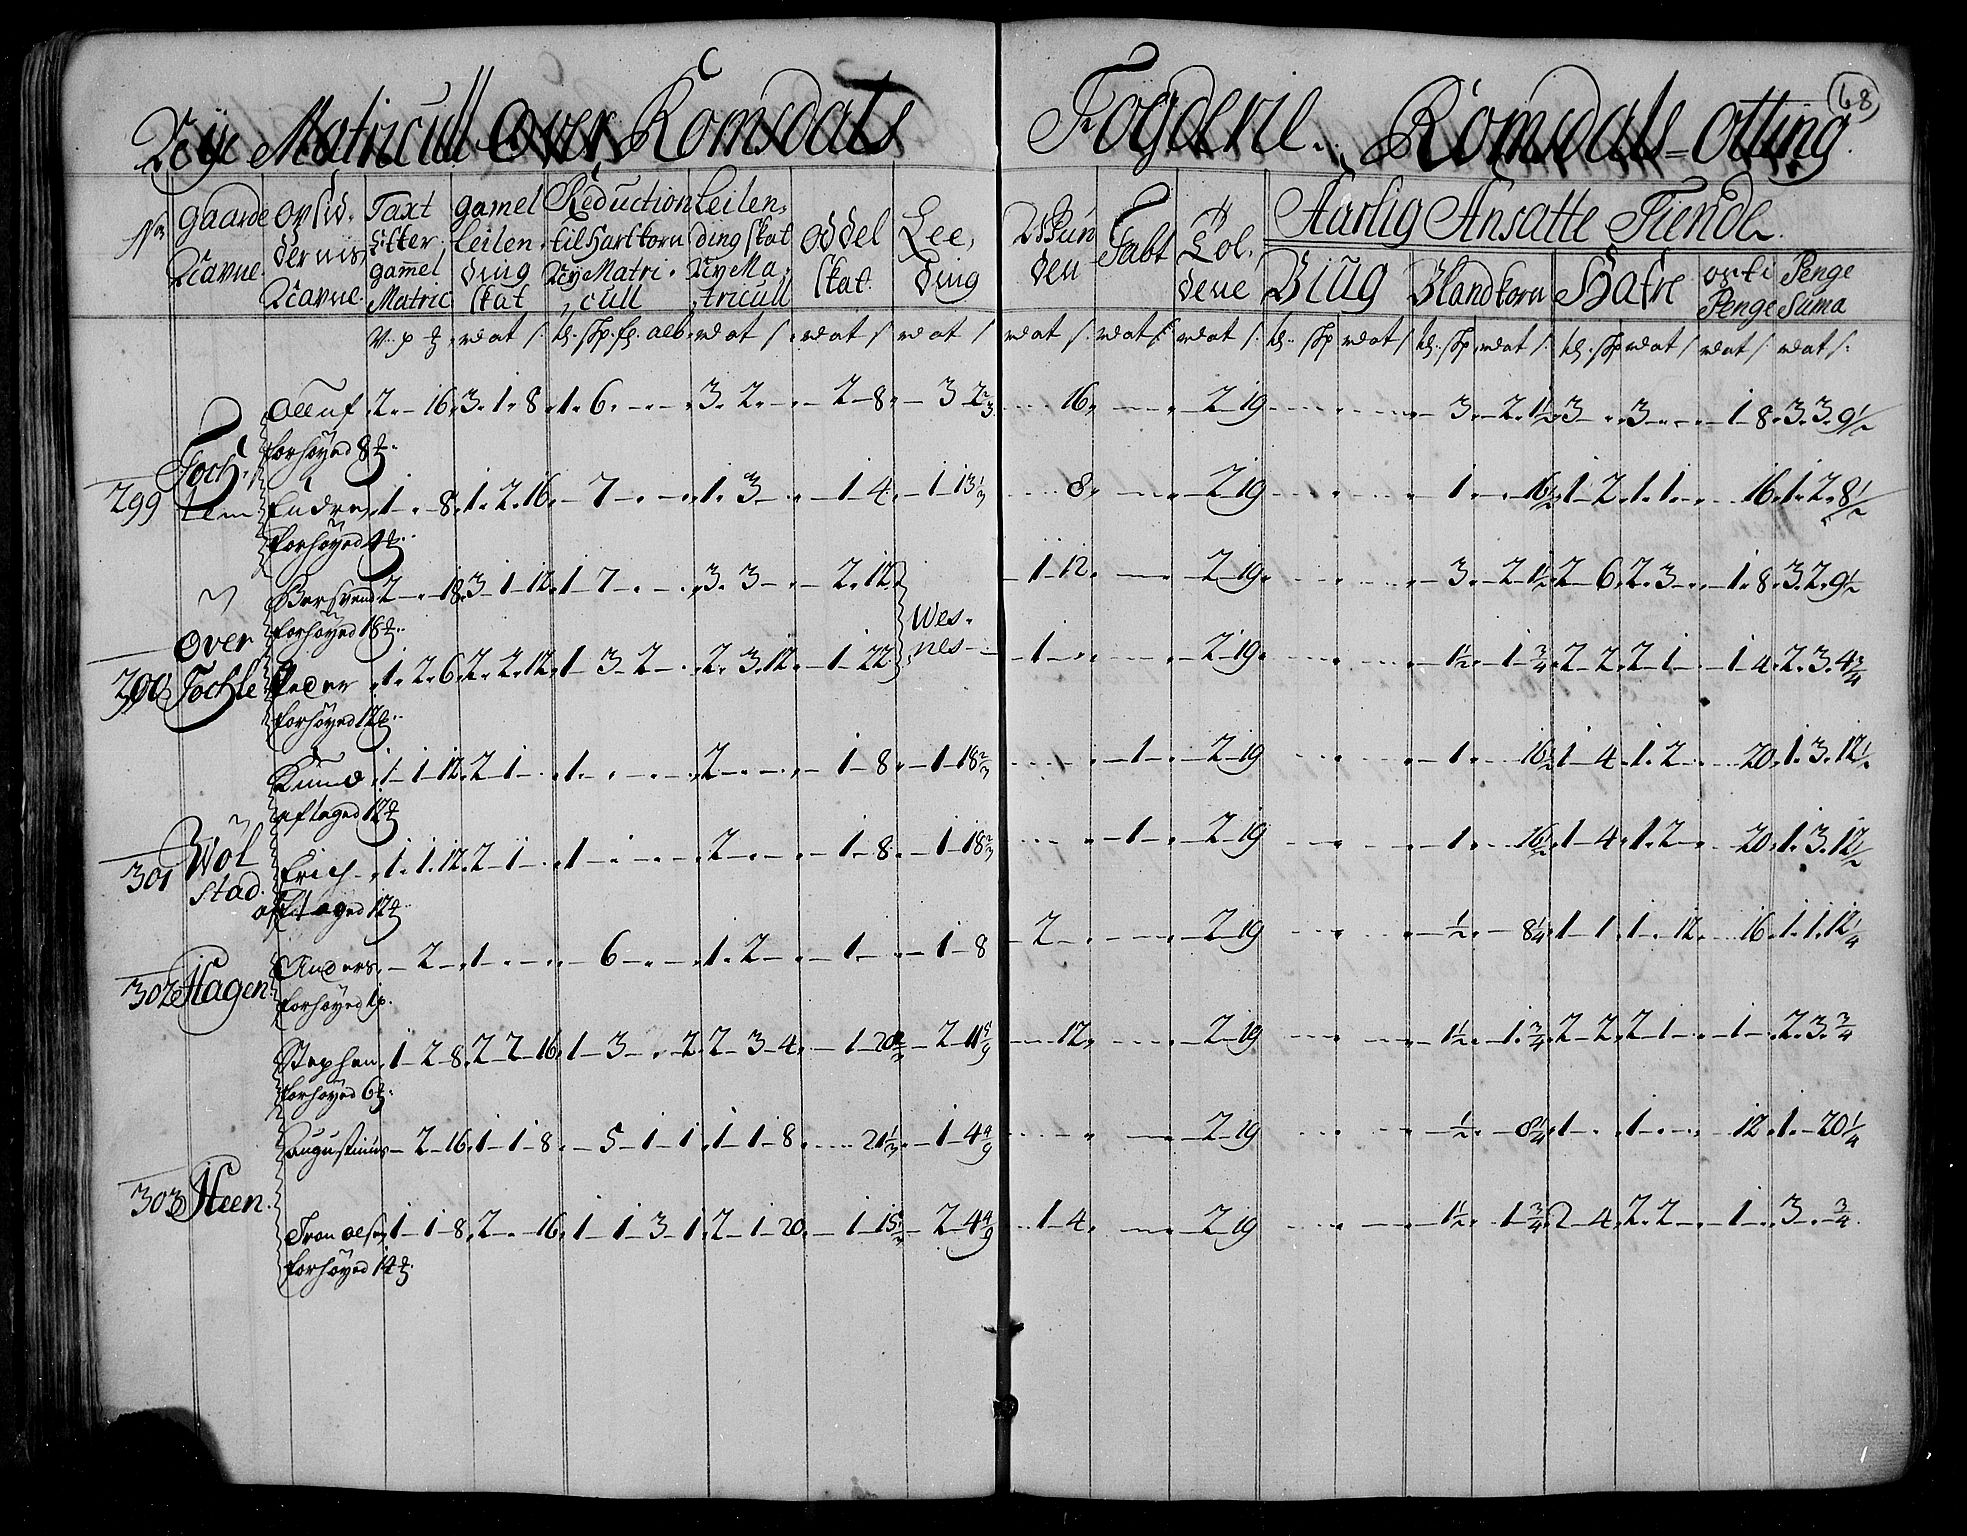 Nÿe Matricull Over Romsdals Fogderie. Romsdals Otting.
68
No
Gaarde Navne
Opsid- dernis Navne
Taxt Efter gamel Matric
gamel Leilen ding Skat
Reduction til Hartkorn Nÿe Matri- cull
Leilen- ding Skat Nÿ Ma- tricull
Oddel Skat
Lee, ding
Wis Bun den
Fabt
Lol, dene
Aarlig Ansatte Tiende
Biug
Blandkorn
Hafre
osti Penge
Penge Suma
Olluf 2 - 16 3 1 8 1 6 - - 3 2 - - 2 8 - 3 2 2/3 - - 16 - - - - 2 19 - 3 - 2 1 1/2 3 - - 3 - - 1 8 3 3 9 1/2
forhøyed 8
299 Toch, lem
Endre 1 - 8 1 2 16 - 7 - - 1 3 - - 1 4 - 1 13 1/3 - - 8 - - - - 2 19 - 1 - - 16 1/2 1 2 1 1 - - - 16 1 2 8 1/2
forhøyed 4
Bersvend 2 - 18 3 1 12 1 7 - - 3 3 - - 2 12 - 1 12 - - - - 2 19 - 3 - 2 1 1/2 2 6 2 3 - - 1 8 3 2 9 1/2
forhøyed 18
Wes- nes
300 Over Tochle
Peder 1 2 6 2 2 12 1 3 2 - 2 3 12 - 1 22 - 1 - - - - - 2 19 - 1 1/2 - 1 3/4 2 2 2 1 - - 1 4 2 3 4 3/4
forhøyed 12
Knud 1 1 12 2 1 - 1 - - - 2 - - - 1 8 - 1 18 2/3 - - - - 1 - - 2 19 - 1 - - 16 1/2 1 4 1 2 - - - 20 1 3 12 1/2
aftaged 12
301 Wol stad
Erich 1 1 12 2 1 - 1 - - - 2 - - - 1 8 - 1 18 2/3 - - - - 1 - - 2 19 - 1 - - 16 1/2 1 4 1 2 - - - 20 1 3 12 1/2
aftaged 12
302 Hagen
Anders - 2 - 1 - - - 6 - - 1 2 - - 1 - - 1 8 - 2 - - - - - 2 19 - 1/2 - - 8 1/4 1 1 1 - 12 - - 16 1 1 12 1/4
forhøyed 1 p
Stephen 1 2 8 2 2 16 1 3 - 2 2 3 4 - 1 20 - 2 11 - - 12 - - - - 2 19 - 1 1/2 - 1 3/4 2 2 2 1 - - 1 - 2 3 3/4
forhøyed 6
Augustinus - 2 16 1 1 8 - 5 1 1 1 1 8 - - 21 1/3 - 1 4 4/9 - - - - - - - 2 19 - 1/2 - - 8 1/4 1 - 1 - - - - 12 1 - 20 1/4
303 Heen
Tron olsen 1 1 8 2 - 16 1 1 3 1 2 1 20 - 1 15 - 2 4 4/9 - 1 4 - - - - 2 19 - 1 1/2 - 1 3/4 2 4 2 2 - - 1 - 3 - 3/4
forhøyed 14